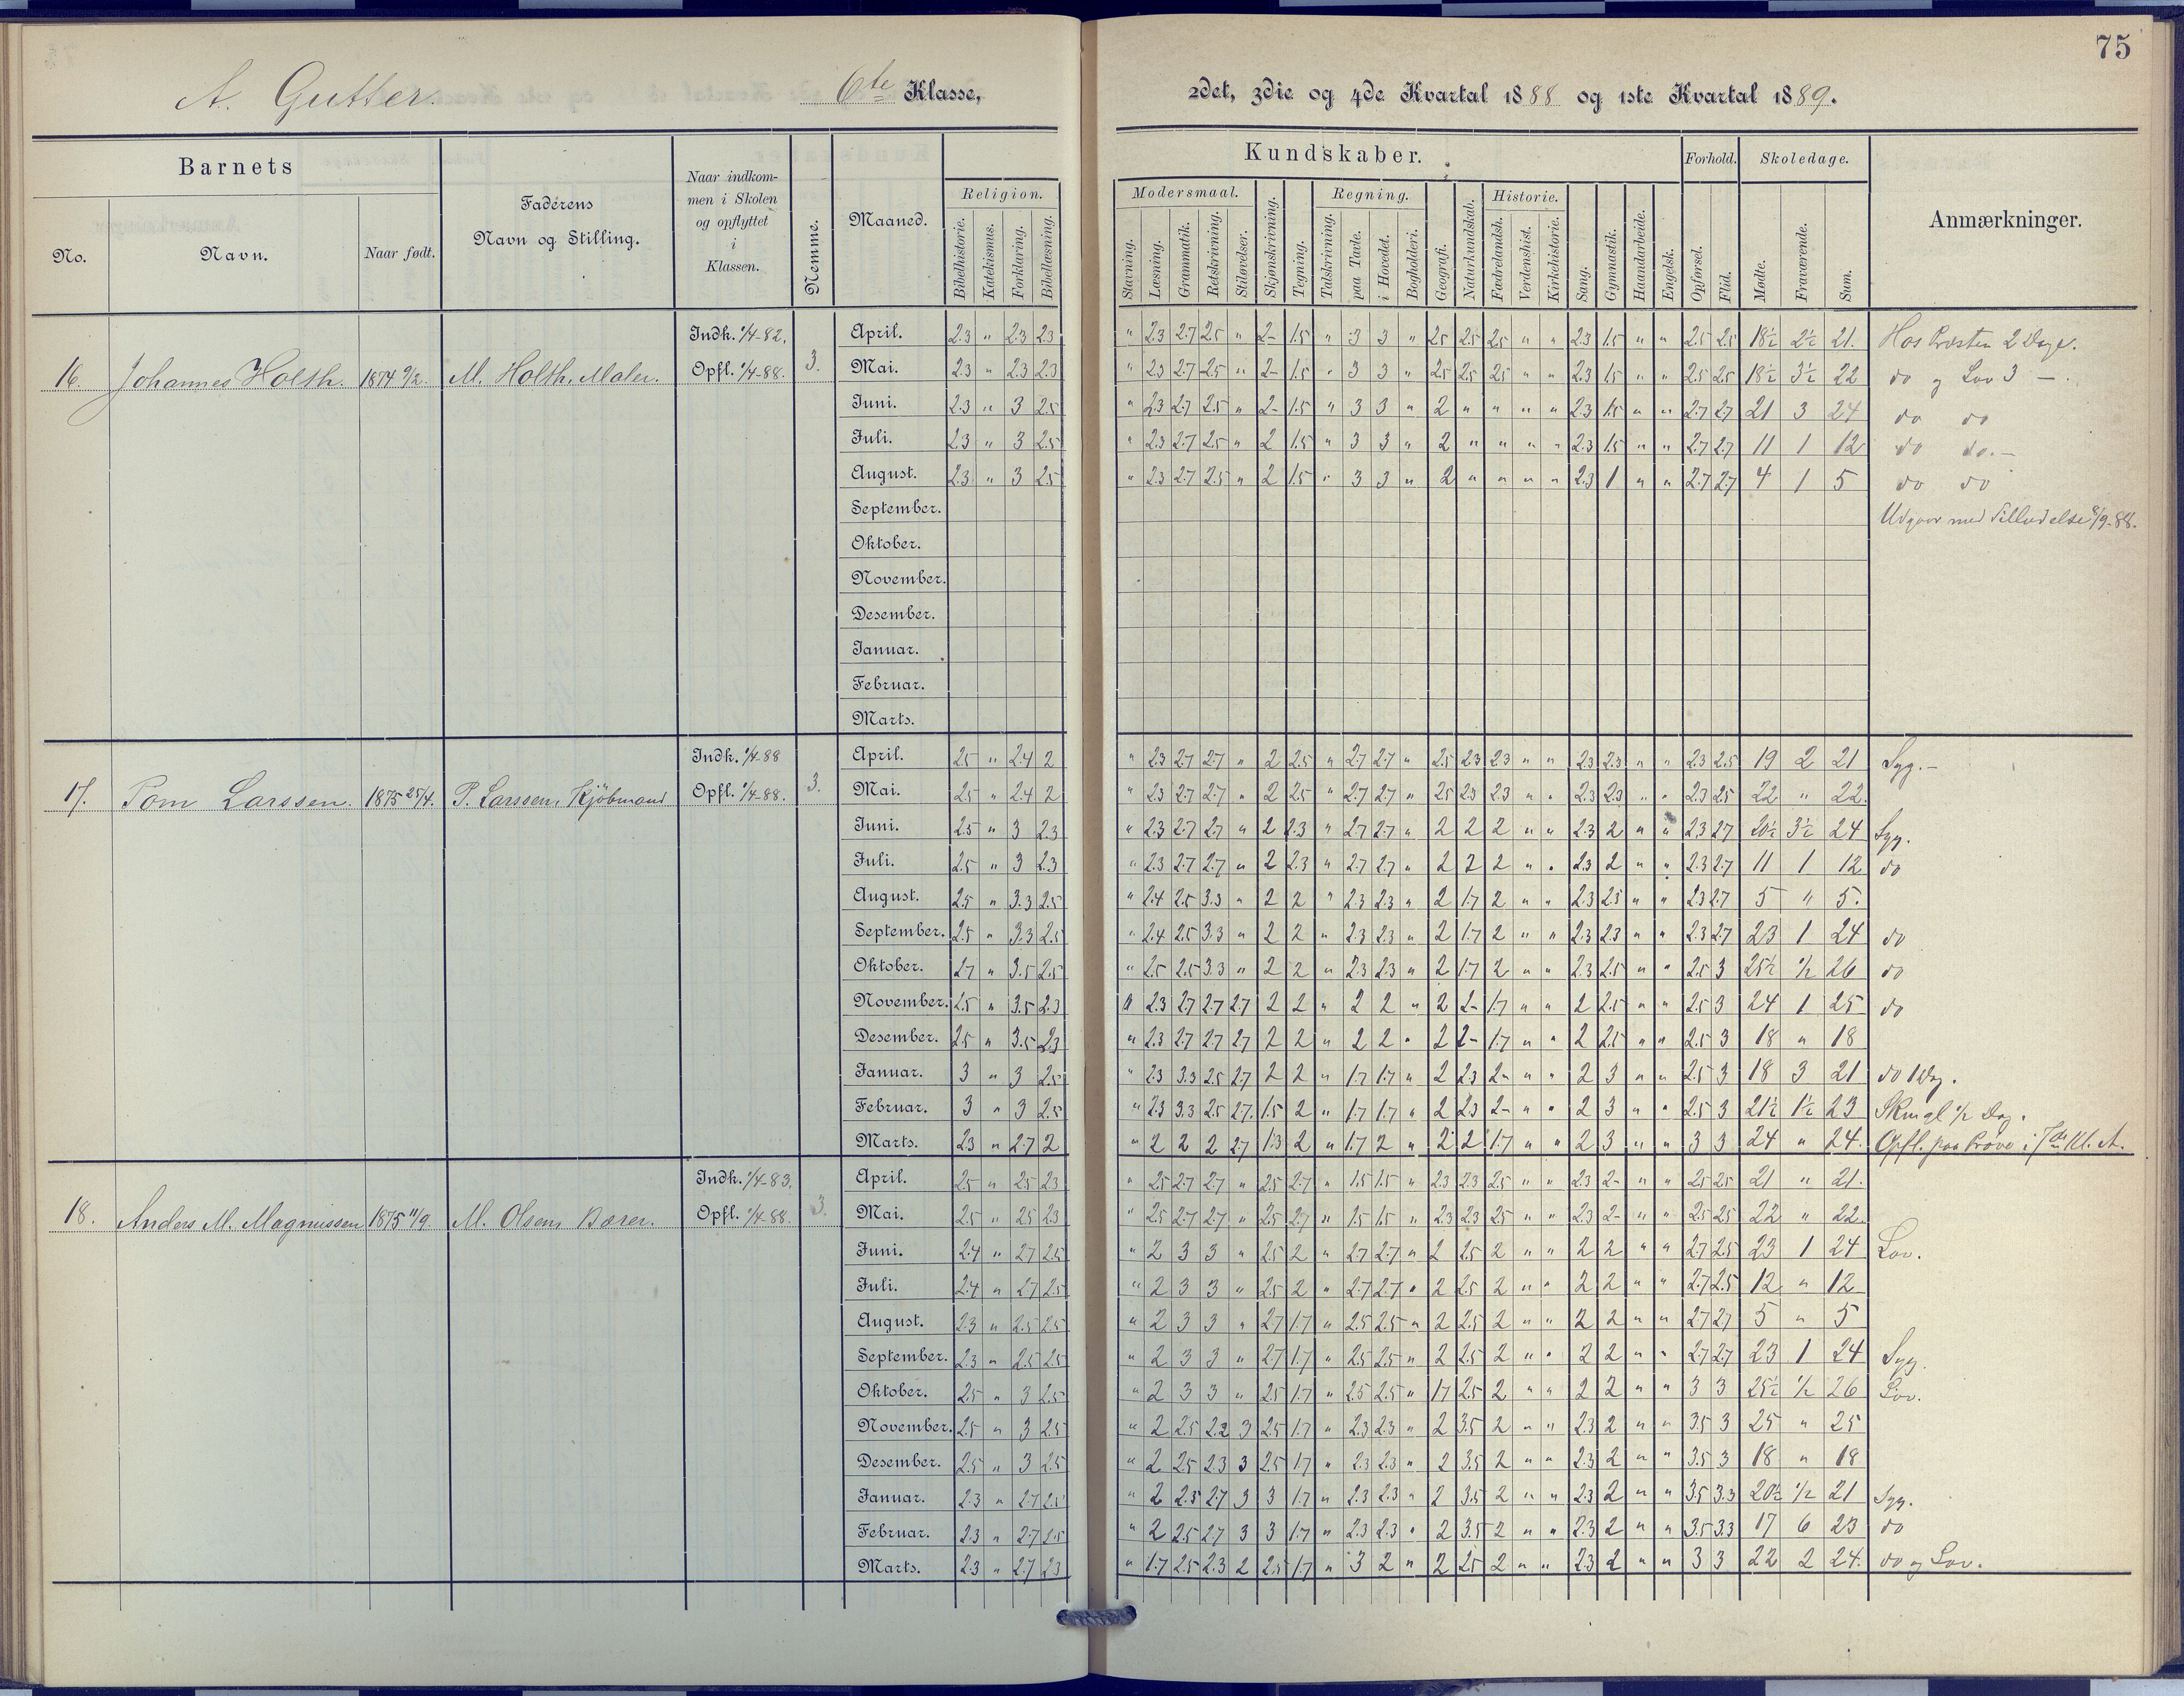 75
A. Gutter. 6te Klasse, 2det, 3die og 4de Kvartal 1888 og 1ste Kvartal 1889.
Barnets
No.
Navn.
Naar født.
Faderens
Navn og Stilling.
Naar indkom-
men i Skolen
og opflyttet
i
Klassen.
Nemme.
Maaned.
Kundskaber.
Religion.
Bibelhistorie. Katekismus. Forklaring. Bibellæsning.
Modersmaal.
Stavning. Læsning. Grammatik. Retskrivning. Stiløvelser.
Skjønskrivning. Tegning.
Regning.
Talskrivning. paa Tavle. i Hovedet. Bogholderi.
Geografi. Naturkundskab.
Historie.
Fædrelandsh. Verdenshist. Kirkehistorie.
Sang. Gymnastik. Haandarbeide. Engelsk.
Forhold.
Opførsel. Flid.
Skoledage.
Mødte. Fraværende. Sum.
Anmærkninger.
16. Johannes Holth. 1874 9/2. M. Holth, Maler. Indk. 1/4-82. Opfl. 1/4-88. 3.
April. 2.3 " 2.3 2.3 " 2.3 2.7 2.5 " 2- 1.5 " 3 3 " 2.5 2.5 2.5 " " 2.3 1.5 " " 2.5 2.5 18½ 2½ 21. Hos Presten 2 Dage.
Mai. 2.3 " 2.3 2.3 " 2.3 2.7 2.5 " 2- 1.5 " 3 3 " 2.5 2.5 2.5 " " 2.3 1.5 " " 2.5 2.5 18½ 3½ 22 do og Lov 3 —.
Juni. 2.3 " 3 2.5 " 2.3 2.7 2.5 " 2- 1.5 " 3 3 " 2 " " " " 2.3 1.5 " " 2.7 2.7 21 3 24 do do
Juli. 2.3 " 3 2.5 " 2.3 2.7 2.5 " 2 1.5 " 3 3 " 2 " " " " 2.3 1.5 " " 2.7 2.7 11 1 12 do do.-
August. 2.3 " 3 2.5 " 2.3 2.7 2.5 " 2 1.5 " 3 3 " 2 " " " " 2.3 1 " " 2.7 2.7 4 1 5 do do
September. Udgaar med Tilladelse 8/9-88.
Oktober.
November.
Desember.
Januar.
Februar.
Marts.
17. Tom Larssen. 1875 25/4. P. Larssen, Kjøbmand Indk. 1/4-88 Opfl. 1/4-88. 3.
April. 2.5 " 2.4 2 " 2.3 2.7 2.7 " 2 2.5 " 2.7 2.7 " 2.5 2.3 2.3 " " 2.3 2.3 " " 2.3 2.5 19 2 21 Syg.-
Mai. 2.5 " 2.4 2 " 2.3 2.7 2.7 " 2 2.5 " 2.7 2.7 " 2.5 2.3 2.3 " " 2.3 2.3 " " 2.3 2.5 22 " 22.
Juni. 2.5 " 3 2.3 " 2.3 2.7 2.7 " 2 2.3 " 2.7 2.7 " 2 2 2 " " 2.3 2 " " 2.3 2.7 20½ 3½ 24 Syg.
Juli. 2.5 " 3 2.3 " 2.3 2.7 2.7 " 2 2.3 " 2.7 2.7 " 2 2 2 " " 2.3 2 " " 2.3 2.7 11 1 12 do
August. 2.5 " 3.3 2.5 " 2.4 2.5 3.3 " 2 2 " 2.3 2.3 " 2 1.7 2 " " 2.3 2.3 " " 2.3 2.7 5 " 5.
September. 2.5 " 3.3 2.5 " 2.4 2.5 3.3 " 2 2 " 2.3 2.3 " 2 1.7 2 " " 2.3 2.3 " " 2.3 2.7 23 1 24 do
Oktober. 2.7 " 3.5 2.5 " 2.5 2.5 3.3 " 2 2 " 2.3 2.3 " 2 1.7 2 " " 2.3 2.5 " " 2.5 3 25½ ½ 26 do
November. 2.5 " 3.5 2.3 " 2.3 2.7 2.7 2.7 2 2 " 2 2 " 2 2- 1.7 " " 2 2.5 " " 2.5 3 24 1 25 do
Desember. 2.5 " 3.5 2.3 " 2.3 2.7 2.7 2.7 2 2 " 2 2 " 2 2- 1.7 " " 2 2.5 " " 2.5 3 18 " 18
Januar. 3 " 3 2.5 " 2.3 3.3 2.5 2.7 2 2 " 1.7 1.7 " 2 2.3 2- " " 2 3 " " 2.5 3 18 3 21 do 1 Dag.
Februar. 3 " 3 2.5 " 2.3 3.3 2.5 2.7. 1.5 2 " 1.7 1.7 " 2 2.3 2- " " 2 3 " " 2.5 3 21½ 1½ 23 ½ Dag.
Marts. 2.3 " 2.7 2 " 2 2 2 2.7 1.3 2 " 1.7 2 " 2 2 1.7 " " 2 3 " " 3 3 24 " 24. Opfl. paa Prøve i 7de Kl. A.
18. Anders M. Magnussen 1875 11/9 M. Olsen, Bærer. Indk. 1/4-83. Opfl. 1/4-88. 3.
April. 2.5 " 2.5 2.3 " 2.5 2.7 2.7 " 2.5 2.7 " 1.5 1.5 " 2.3 2.3 2.5 " " 2.3 2- " " 2.5 2.5 21 " 21.
Mai. 2.5 " 2.5 2.3 " 2.5 2.7 2.7 " 2.5 2.7 " 1.5 1.5 " 2.3 2.3 2.5 " " 2.3 2- " " 2.5 2.5 22 " 22
Juni. 2.4 " 2.7 2.5 " 2 3 3 " 2.5 2 " 2.7 2.7 " 2 2.5 2 " " 2 2 " " 2.7 2.5 23 1 24 Lov.
Juli. 2.4 " 2.7 2.5 " 2 3 3 " 2.5 2 " 2.7 2.7 " 2 2.5 2 " " 2 2 " " 2.7 2.5 12 " 12
August. 2.3 " 2.5 2.5 " 2 3 3 " 2.7 1.7 " 2.5 2.5 " 2 2.5 2 " " 2 2 " " 2.7 2.7 5 " 5
September. 2.3 " 2.5 2.5 " 2 3 3 " 2.7 1.7 " 2.5 2.5 " 2 2.5 2 " " 2 2 " " 2.7 2.7 23 1 24 Syg.
Oktober. 2.5 " 3 2.5 " 2 3 3 " 2.5 1.7 " 2.5 2.5 " 1.7 2.5 2 " " 2 2 " " 3 3 25½ ½ 26 Lov.
November. 2.5 " 3 2.5 " 2 2.5 2.2 3 2.5 1.7 " 2.3 2.3 " 2 3.5 2 " " 2.3 2 " " 3.5 3 25 " 25
Desember. 2.5 " 3 2.5 " 2 2.5 2.3 3 2.5 1.7 " 2.3 2.3 " 2 3.5 2 " " 2.3 2 " " 3.5 3 18 " 18
Januar. 2.3 " 2.7 2.5 " 2 2.5 2.7 3 3 1.7 " 2.3 2.3 " 2 3.5 2 " " 2.3 2 " " 3.5 3.3 20½ ½ 21 Syg.
Februar. 2.3 " 2.7 2.5 " 2 2.5 2.7 3 3 1.7 " 2.3 2.3 " 2 3.5 2 " " 2.3 2 " " 3.5 3.3 17 6 23 do
Marts. 2.3 " 2.7 2.3 " 1.7 2.5 2.3 2 2.5 1.7 " 3 2 " 2 2.5 2 " " 2.3 2 " " 3 3 22 2 24. do og Lov.